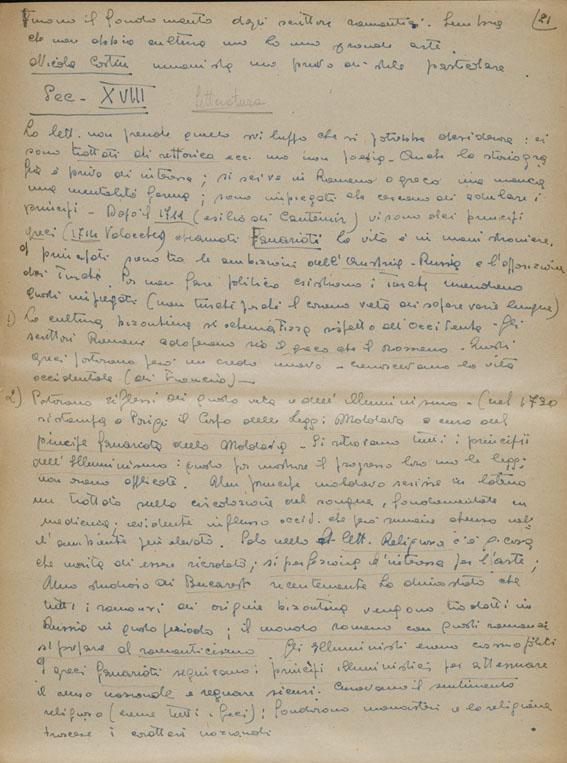 21
Furono il fondamento degli scrittori romantici. Sembra
che non abbia cultura ma ha una grande arte.
Nicola Costin umanista ma privo di stile particolare
Sec - XVIII letteratura
La lett. non prende quello sviluppo che si potrebbe desiderare : ci
sono trattati di rettorica ecc. ma non poesia - Anche la storiografia
è privo di interesse ; si scrive in Romeno o greco ma manca
una mentalità ferma ; sono impiegati che cercano di adulare i
principi - Dopo il 1711 (esilio di Cantemir) vi sono dei principi
greci (1714 Valacchia) chiamati Fanarioti la vita è in mani straniere.
I principati sono tra le ambizioni dell'Austria - Russia e l'opposizione
dei Turchi. Per non fare politica esistevano i Turchi mandano
questi impiegati (non turchi perchè il corano vieta di sapere varie lingue)
1) La cultura bizantina si schematizza rispetto all'Occidente - Gli
scrittori Romeni adoperano più il greco che il romeno - Questi
greci portarono però un credo nuovo - conoscevano la vita
occidentale (di Francia) -
2) Portarono riflessi di questa vita e dell'Illuminismo - (nel 1730
si stampa a Parigi il Corpo delle Leggi Moldava a cura del
principe fanariota della Moldavia - Si ritrovano tutti i principii
dell'Illuminismo : questo per mostrare il progresso loro ma le leggi
non erano applicate. Altro principe moldavo scrisse in latino
un trattato sulla circolazione del sangue, fondamentale in
medicina ; evidente influsso occid. che però rimane chiuso nel
l'ambiente più elevato. Solo nella lett. Religiosa c'è qcosa
che merita di essere ricordato ; si perfeziona l'interesse per l'arte ;
Uno studioso di Bucarest recentemente ha dimostrato che
tutti i romanzi di origine bizantina vengono tradotti in
Russia in questo periodo ; il mondo romeno con questi romanzi
si prepara al romanticismo Gli illuministi erano cosmopoliti
I greci fanarioti seguivano i principi illuministici per attenuare
il senso nazionale e regnare sicuri. Curavano il sentimento
religioso (come tutti i Greci) ; fondarono monasteri e la religione
i caratteri nazionali